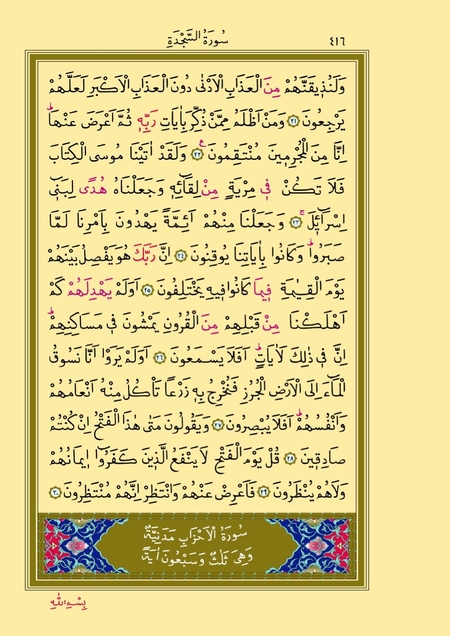 سُورَةُ السَّجْدَةِ ٤١٦
وَلَنُذ۪يقَنَّهُمْ مِنَ الْعَذَابِ الْاَدْنٰى دُونَ الْعَذَابِ الْاَكْبَرِ لَعَلَّهُمْ
يَرْجِعُونَ ﴿٢١﴾ وَمَنْ اَظْلَمُ مِمَّنْ ذُكِّرَ بِاٰيَاتِ رَبِّه۪ ثُمَّ اَعْرَضَ عَنْهَاۜ
اِنَّا مِنَ الْمُجْرِم۪ينَ مُنْتَقِمُونَ۟ ﴿٢٢﴾ وَلَقَدْ اٰتَيْنَا مُوسَى الْكِتَابَ
فَلَا تَكُنْ ف۪ي مِرْيَةٍ مِنْ لِقَٓائِه۪ وَجَعَلْنَاهُ هُدًى لِبَن۪ٓي
اِسْرَٓائ۪لَۚ ﴿٢٣﴾ وَجَعَلْنَا مِنْهُمْ اَئِمَّةً يَهْدُونَ بِاَمْرِنَا لَمَّا
صَبَرُواۜ وَكَانُوا بِاٰيَاتِنَا يُوقِنُونَ ﴿٢٤﴾ اِنَّ رَبَّكَ هُوَ يَفْصِلُ بَيْنَهُمْ
يَوْمَ الْقِيٰمَةِ ف۪يمَا كَانُوا ف۪يهِ يَخْتَلِفُونَ ﴿٢٥﴾ اَوَلَمْ يَهْدِ لَهُمْ كَمْ
اَهْلَكْنَا مِنْ قَبْلِهِمْ مِنَ الْقُرُونِ يَمْشُونَ ف۪ي مَسَاكِنِهِمْۜ
اِنَّ ف۪ي ذٰلِكَ لَاٰيَاتٍۜ اَفَلَا يَسْمَعُونَ ﴿٢٦﴾ اَوَلَمْ يَرَوْا اَنَّا نَسُوقُ
الْمَٓاءَ اِلَى الْاَرْضِ الْجُرُزِ فَنُخْرِجُ بِه۪ زَرْعًا تَأْكُلُ مِنْهُ اَنْعَامُهُمْ
وَاَنْفُسُهُمْۜ اَفَلَا يُبْصِرُونَ ﴿٢٧﴾ وَيَقُولُونَ مَتٰى هٰذَا الْفَتْحُ اِنْ كُنْتُمْ
صَادِق۪ينَ ﴿٢٨﴾ قُلْ يَوْمَ الْفَتْحِ لَا يَنْفَعُ الَّذ۪ينَ كَفَرُٓوا ا۪يمَانُهُمْ
وَلَا هُمْ يُنْظَرُونَ ﴿٢٩﴾ فَاَعْرِضْ عَنْهُمْ وَانْتَظِرْ اِنَّهُمْ مُنْتَظِرُونَ ﴿٣٠﴾
سُورَةُ الْاَحْزَابِ مَدَنِيَّةٌ
وَهِيَ ثَلٰثٌ وَسَبْعُونَ اٰيَةً
بِسْمِ اللّٰهِ